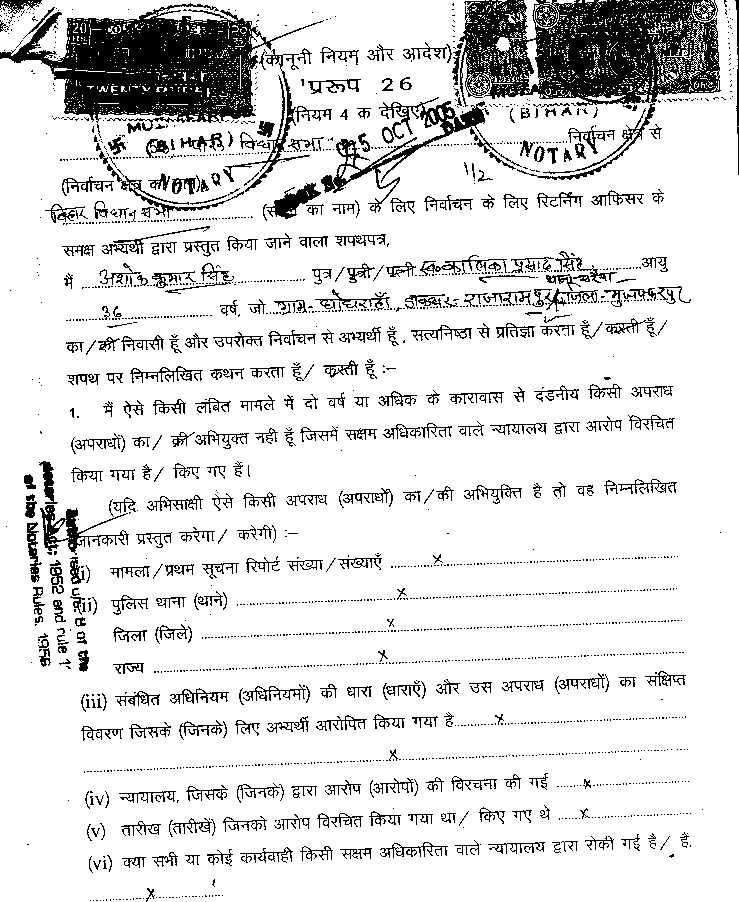 (कानूनी नियम और आदेश)
प्ररुप 26
(नियम 4 क देखिए)
MUZAFFARPUR
(BIHAR)
NOTARY
(BIHAR)
NOTARY
5 OCT 2005
विधान सभा
निर्वाचन क्षेत्र से
(निर्वाचन क्षेत्र का नाम)
1/2
बिहार विधान सभा (सदन का नाम) के लिए निर्वाचन के लिए रिटर्निंग आफिसर के
समक्ष अभ्यर्थी द्वारा प्रस्तुत किया जाने वाला शपथपत्र,
मैं अशोक कुमार सिंह पुत्र/पुत्री/पत्नी स्व. कालिका प्रसाद सिंह आयु
36 वर्ष, जो ग्राम- डाकघर- राजारामपुर, जिला- मुजफ्फरपुर
का/की निवासी हूँ और उपरोक्त निर्वाचन से अभ्यर्थी हूँ, सत्यनिष्ठा से प्रतिज्ञा करता हूँ/करती हूँ/
शपथ पर निम्नलिखित कथन करता हूँ/ करती हूँ :–
1. मैं ऐसे किसी लंबित मामले में दो वर्ष या अधिक के कारावास से दंडनीय किसी अपराध
(अपराधों) का/ की अभियुक्त नही हूँ जिसमें सक्षम अधिकारिता वाले न्यायालय द्वारा आरोप विरचित
किया गया है/ किए गए हैं।
(यदि अभिसाक्षी ऐसे किसी अपराध (अपराधों) का/की अभियुक्ति है तो वह निम्नलिखित
जानकारी प्रस्तुत करेगा/ करेगी) :–
(i) मामला/प्रथम सूचना रिपोर्ट संख्या/संख्याएँ x
(ii) पुलिस थाना (थाने) x
जिला (जिले) x
राज्य x
(iii) संबंधित अधिनियम (अधिनियमों) की धारा (धाराएँ) और उस अपराध (अपराधों) का संक्षिप्त
विवरण जिसके (जिनके) लिए अभ्यर्थी आरोपित किया गया है x
x
(iv) न्यायालय, जिसके (जिनके) द्वारा आरोप (आरोपों) की विरचना की गई x
(v) तारीख (तारीखें) जिनको आरोप विरचित किया गया था/ किए गए थे x
(vi) क्या सभी या कोई कार्यवाही किसी सक्षम अधिकारिता वाले न्यायालय द्वारा रोकी गई है/ हैं.
x
u/s 8 of the
1952 and rule 1
of the Notaries Rules, 1956